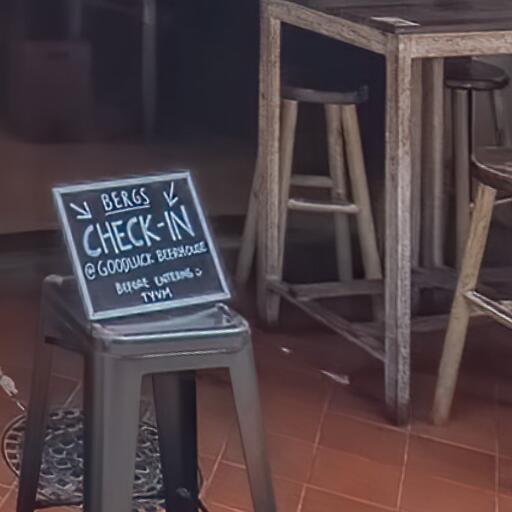 BERGS
CHECK-IN
@ GOODLUCK BEERHOUSE
BEFORE ENTERING :)
TYVM